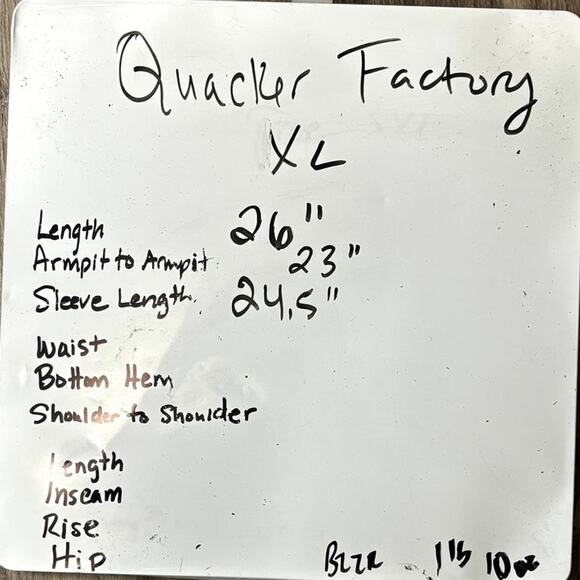 Quacker Factory
XL
Length 26"
Armpit to Armpit 23"
Sleeve Length 24.5"
Waist
Bottom Hem
Shoulder to Shoulder
Length
Inseam
Rise
Hip 1 lb 10 oz